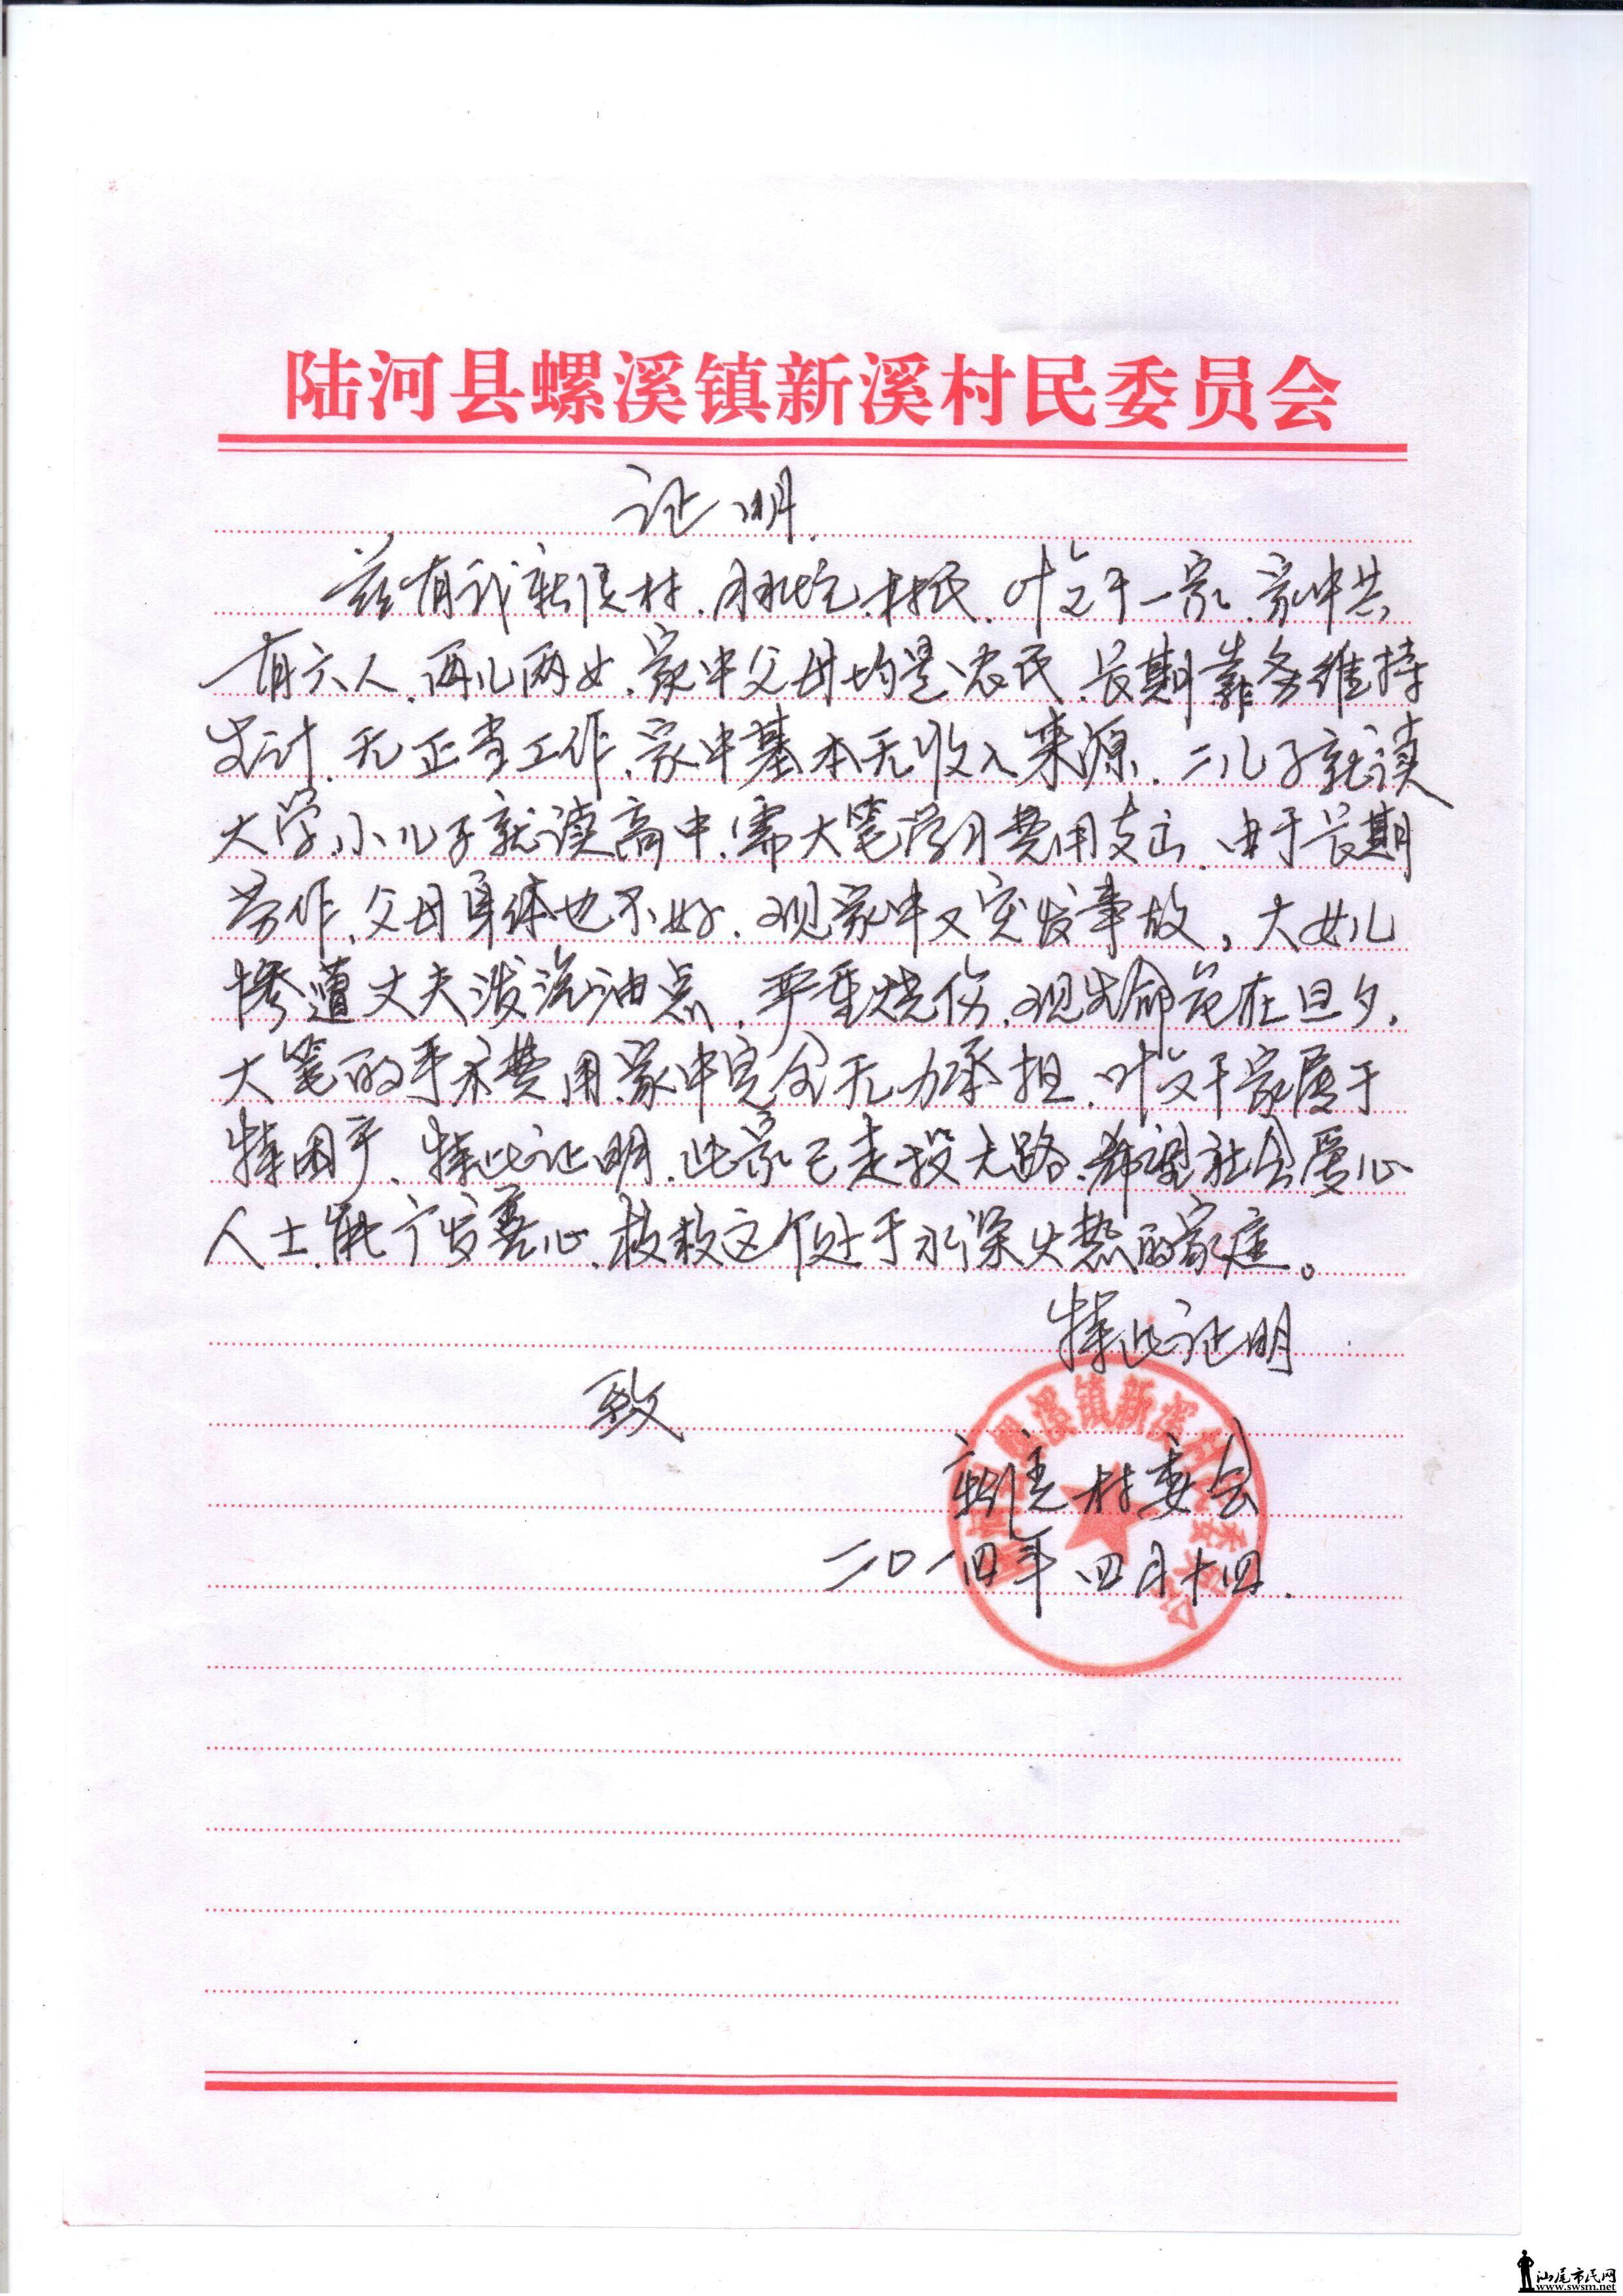 陆河县螺溪镇新溪村民委员会
证明
兹有我新溪村、村民、叶 干一家、家中共
有六人、两儿两女、家中父母均是农民、长期靠务维持
生计、无正当工作、家中基本无收入来源、二儿子就读
大学、小儿子就读高中、需大笔学习费用支出、由于长期
劳作、父母身体也不好、现家中又突发事故，大女儿
惨遭丈夫泼汽油点、严重烧伤、现生命危在旦夕，
大笔的手术费用家中完全无力承担、叶 干家属于
特困户、特此证明、此家已走投无路、希望社会爱心
人士能 发善心、救这个处于水深火热的家庭。
特此证明
致
新溪村委会
二〇一四年四月十四
螺溪镇新溪村民委员会
汕尾市民网
www.swsm.net